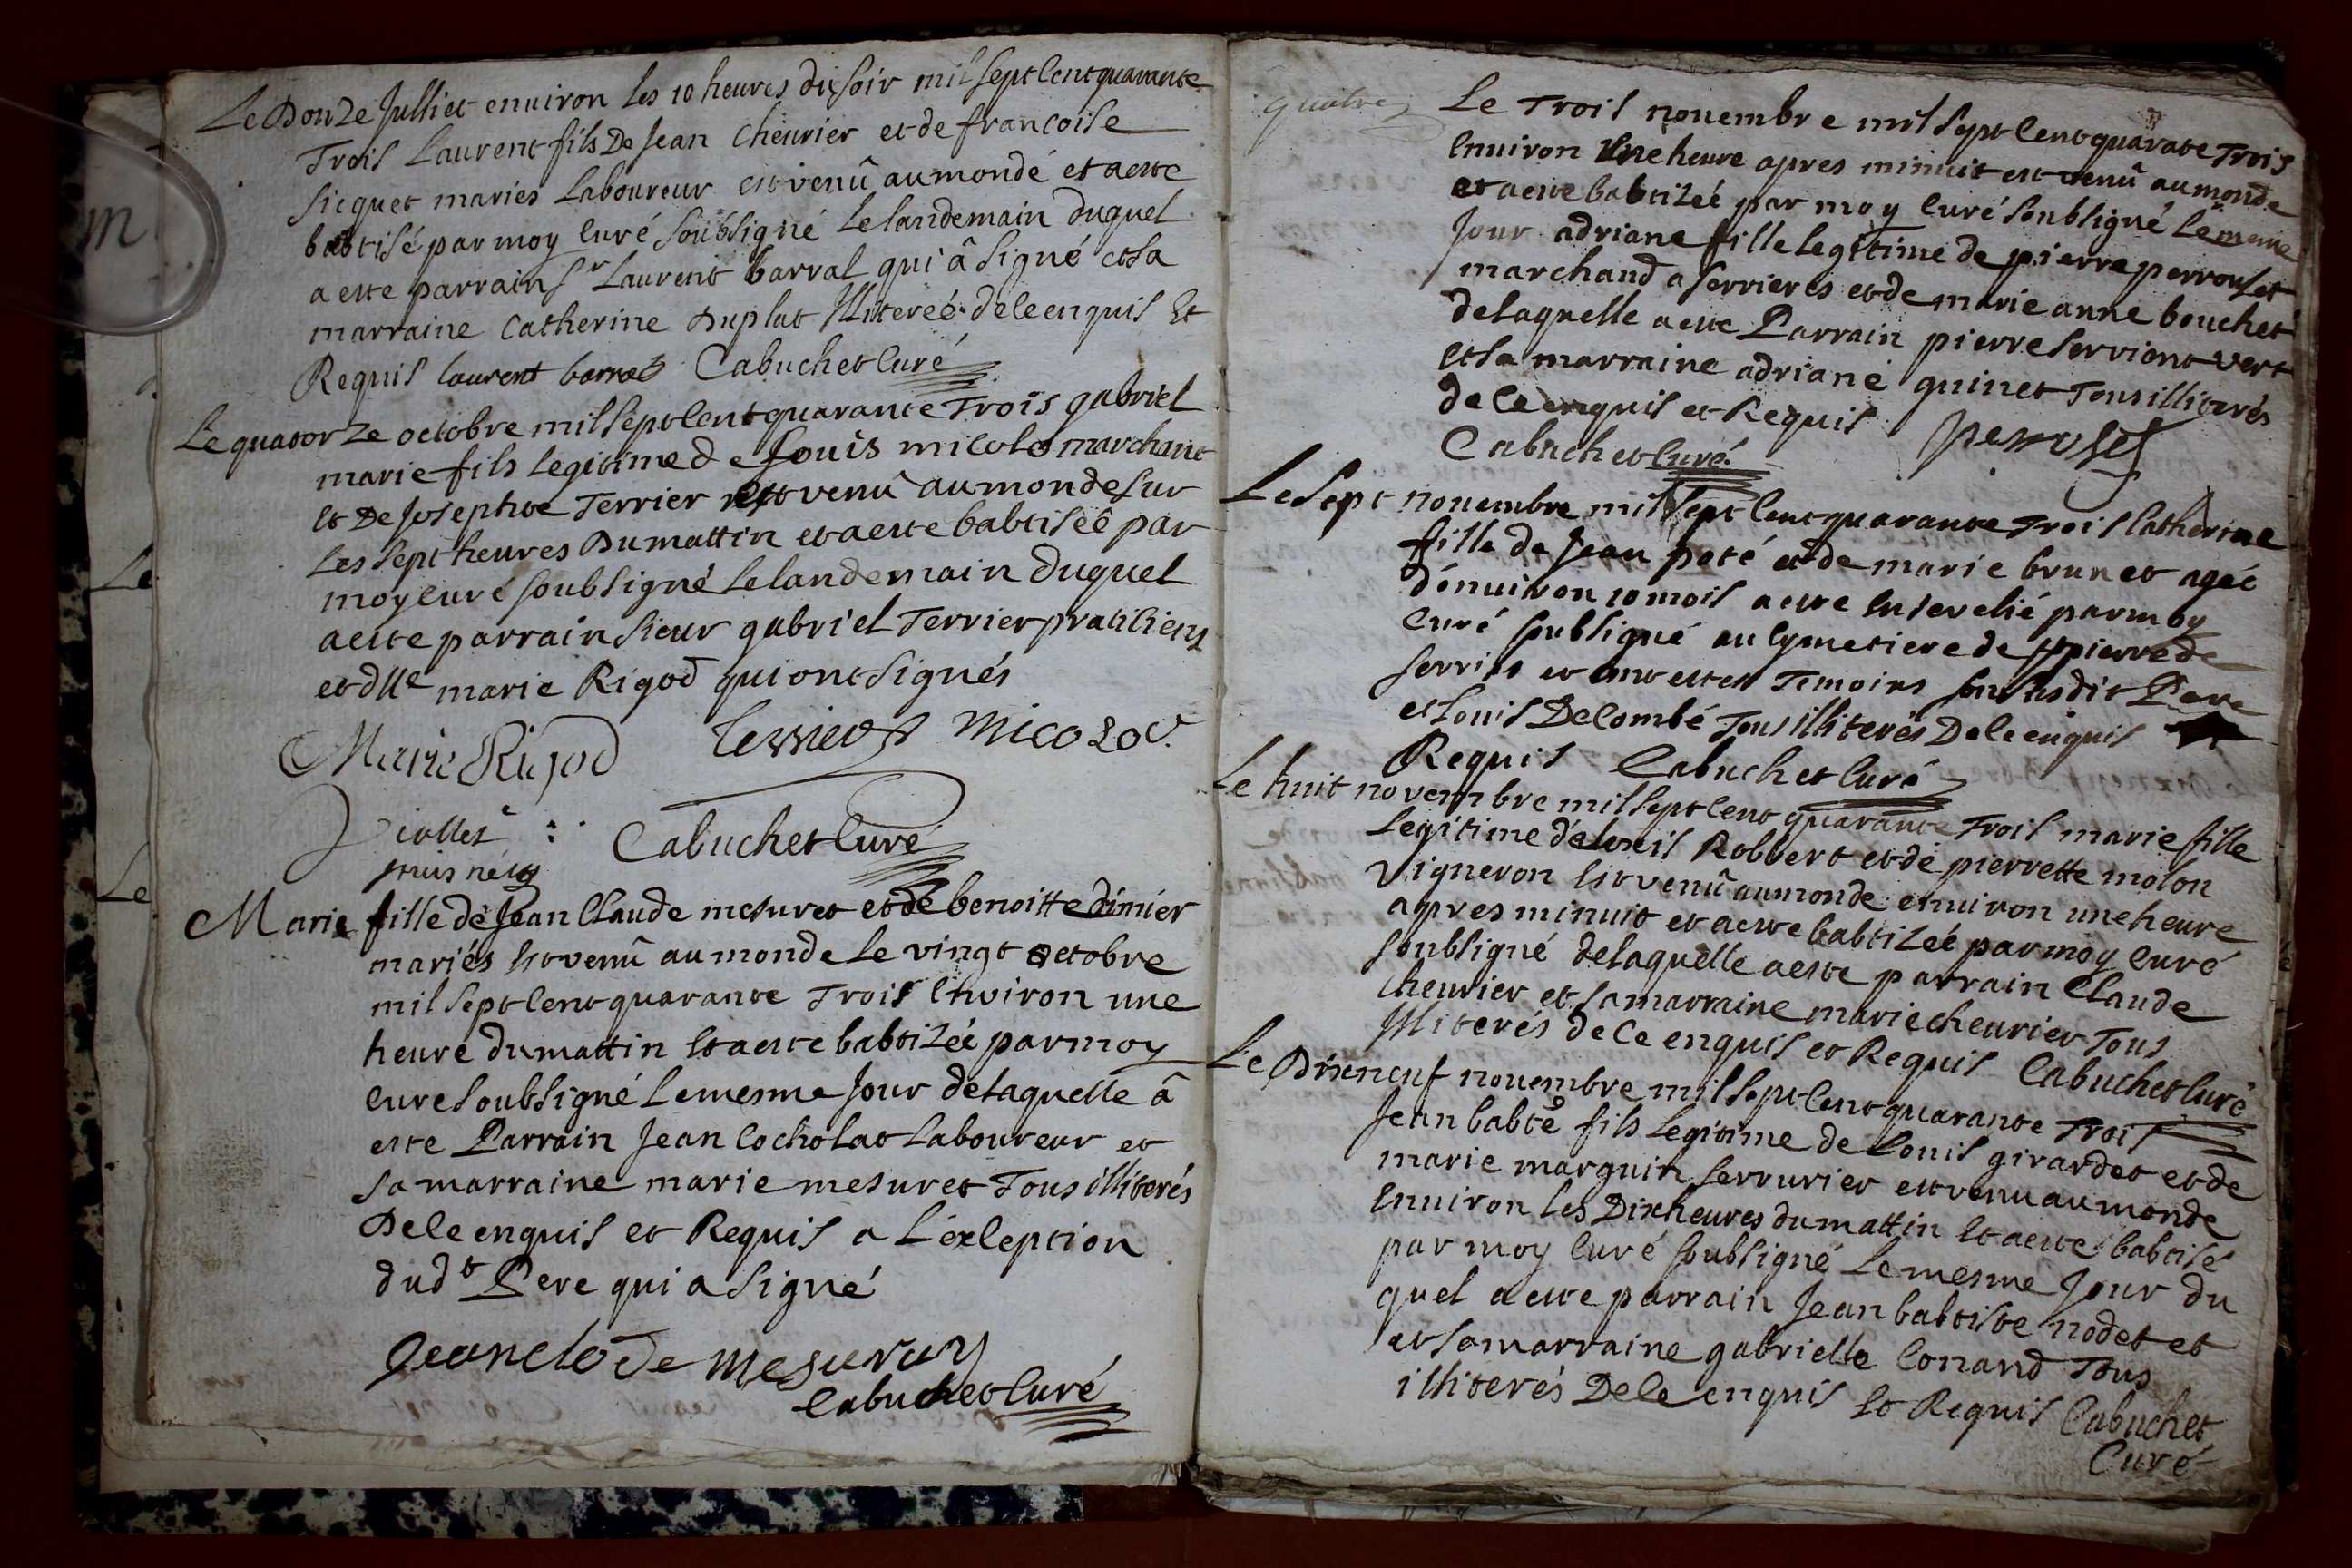 Le Douze Julliet enuiron les 10 heures du soir mil sept Cent quarante
Trois Laurent fils De Jean Cheurier et de francoise
Sicquet mariés Laboureur est venû au monde et a este
babtisé par moy Curé soubsigné Le landemain duquel
a este parrain Sr Laurent barral qui â signé et sa
marraine Catherine Duplat Illiterée de ce enquis Et
Requis laurent barral Cabuchet Curé
Le quatorze octobre mil sept Cent quarante Trois gabriel
marie fils Legitime de Louis micolo marchant
et De Josephte Terrier est venû au monde sur
Les sept heures Du mattin et a este babtiseê par
moy curé soubsigné Le landemain duquel
a este parrain sieur gabriel Terrier praticiens
et dlle marie Rigod qui ont signés
Marie Rigod Terrier Micolo
Violles
puisnéy Cabuchet Curé
Marie fille de Jean Claude mesuret et de benoitte dimier
mariés est venû au monde Le vingt octobre
mil sept Cent quarante Trois Environ une
heure du mattin et a este babtizée par moy
Curé soubsigné Le mesme Jour de laquelle â
este Parrain Jean Cocholat Laboureur et
sa marraine marie mesuret Tous illiterés
De ce enquis et Requis a L'exception
dudt Pere qui a signé
Jean clode mesuray
Cabuchet Curé
quatre
Le Trois nouembre mil sept Cent quarate Trois
Enuiron Une heure apres minuit est venû au monde
et a este babtizée par moy Curé soubsigné Le meme
Jour adriane fille legitime de pierre perrouset
marchand a serrieres et de marie anne bouchet
de laquelle a este Parrain pierre servient vert
et sa marraine adriane guinet Tous illiterés
de ce enquis et Requis perroset
Cabuchet Curé
Le sept nouembre mil sept Cent quarante Trois Catherine
fille de Jean poté et de marie brunet agée
d'enuiron 10 mois a este Enseveliê par moy
Curé soubsigné au Cymetiere de st pierre de
serries et ont estes Temoins sousdit Pere
et Louis Decombé Tous illiterés De ce enquis
Requis Cabuchet Curé
Le huit novembre mil sept Cent quarante Trois marie fille
Legitime de Louis Robbert et de pierrette molon
vigneron Est venû au monde enuiron une heure
apres minuit et a este babtizée par moy Curé
soubsigné de laquelle a este parrain Claude
Cheurier et sa marraine marie cheurier Tous
Illiterés de Ce enquis et Requis Cabuchet Curé
Le Dixneuf nouembre mil sept Cent quarante Trois
Jean babte fils Legitime de Louis girardet et de
marie marguin serrurier est venu au monde
Enuiron Les Dix heures du mattin et a este babtisé
par moy Curé soubsigné Le mesme Jour du
quel a este parrain Jean babtiste nodet et
et sa marraine gabrielle Conand Tous
illiterés De Ce enquis Et Requis Cabuchet
Curé